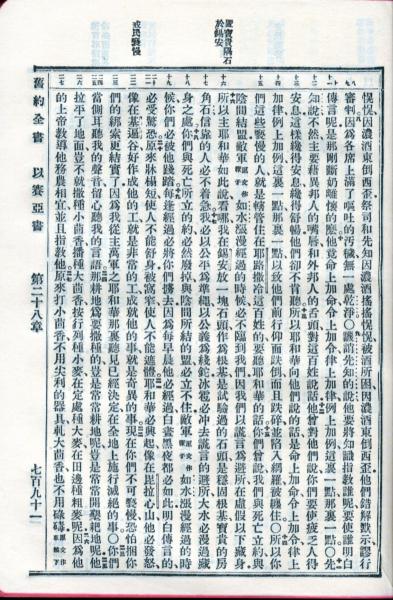 置寶貴隅石於錫安
戒民褻慢
慌慌因濃酒東倒西歪祭司和先知因濃酒搖搖慌慌被酒所困因濃酒東倒西歪他們錯解默示謬行
審判因為各席上滿了嘔吐的污穢無一處乾淨○譏誚先知的說他要將知識指教誰呢要使誰明白
傳言呢是那剛斷奶離懷的麼他竟命上加命令上加令律上加律例上加例這裏一點那裏一點○先
知說不然主要藉異邦人的嘴唇和外邦人的舌頭對這百姓說話他曾對他們說你們要使疲乏人得
安息這樣纔得安息纔得舒暢他們卻不肯聽所以耶和華向他們說的話是命上加命令上加令律上
加律例上加例這裏一點那裏一點以致他們前行仰面跌倒而且跌碎並陷入網羅被纏住○所以你
們這些褻慢的人就是轄管住在耶路撒冷這百姓的要聽耶和華的話你們曾說我們與死亡立約與
陰間結盟敵軍原文作鞭子如水漲漫經過的時候必不臨到我們因我們以謊言為避所在虛假以下藏身
所以主耶和華如此說看哪我在錫安放一塊石頭作為根基是試驗過的石頭是穩固根基寶貴的房
角石信靠的人必不着急我必以公平為準繩以公義為綫鉈冰雹必沖去謊言的避所大水必漫過藏
身之處你們與死亡所立的約必然廢掉與陰間所結的盟必立不住敵軍原文作鞭子如水漲漫經過的時
候你們必被他踐踏每逢經過必將你們擄去因為每早晨他必經過白晝黑夜都必如此明白傳言的
必受驚恐原來牀榻短使人不能舒身被窩窄使人不能遮體耶和華必興起像在毘拉心山他必發怒
像在基遍谷好作成他的工就是非常的工成就他的事就是奇異的事現在你們不可褻慢恐怕捆你
們的綁索更結實了因為我從主萬軍之耶和華那裏聽見已經決定在全地上施行滅絕的事○你們
當側耳聽我的聲音留心聽我的言語那耕地為要撒種的豈是常常耕地呢豈是常常開墾耙地呢他
拉平了地面豈不就撒種小茴香播種大茴香按行列種小麥在定處種大麥在田邊種粗麥呢因為他
的上帝教導他務農相宜並且指教他原來打小茴香不用尖利的器具軋大茴香也不用碌碡原文作車輪下同
舊約全書 以賽亞書 第二十八章 七百九十一